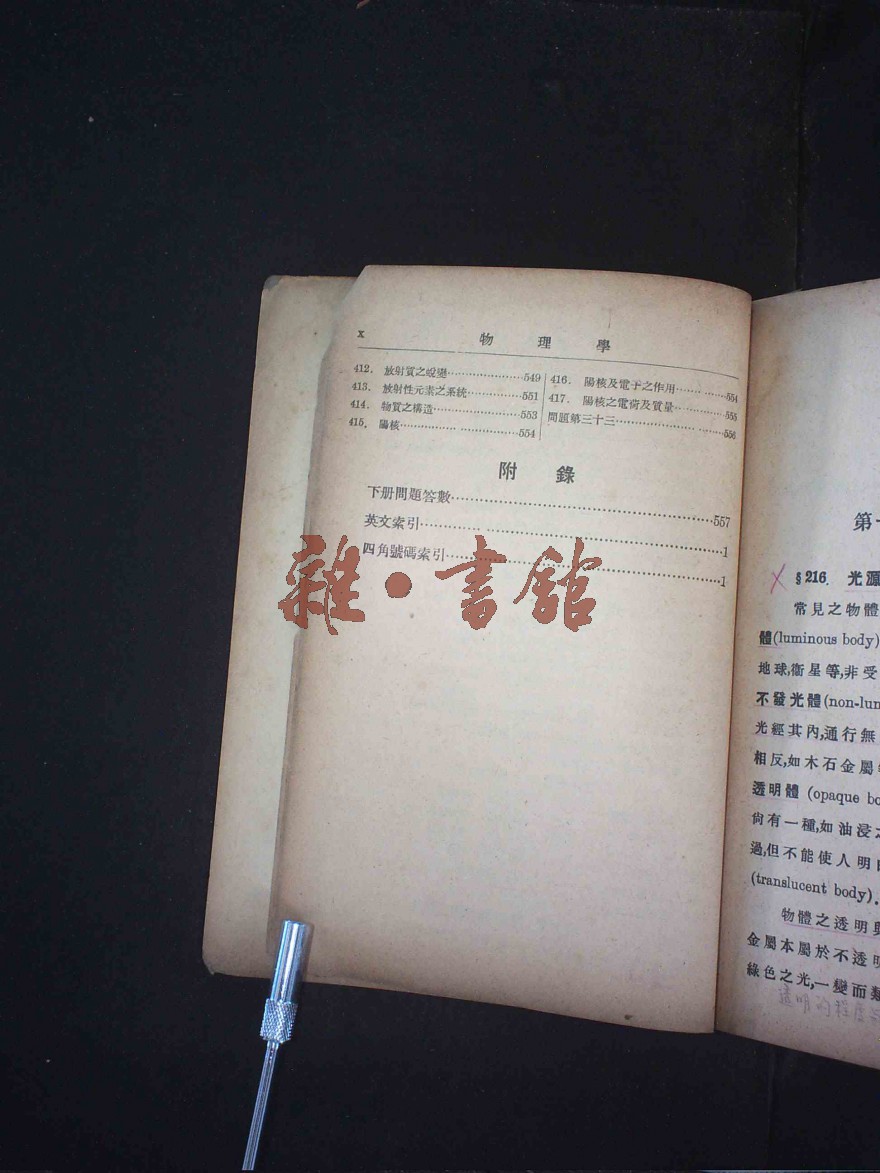 x 物理學
412. 放射質之蛻變……549
413. 放射性元素之系統……551
414. 物質之構造……553
415. 陽核……554
416. 陽核及電子之作用……554
417. 陽核之電荷及質量……555
問題第三十三……556
附錄
下册問題答數……557
英文索引……1
四角號碼索引……1
雜·書館
第
§216. 光源
常見之物體
體(luminous body)
地球,衞星等,非受
不發光體(non-lum
光經其內,通行無
相反,如木石金屬
透明體 (opaque bo
尙有一種,如油浸之
過,但不能使人明
(translucent body).
物體之透明與
金屬本屬於不透明
綠色之光,一變而類
透明的程度